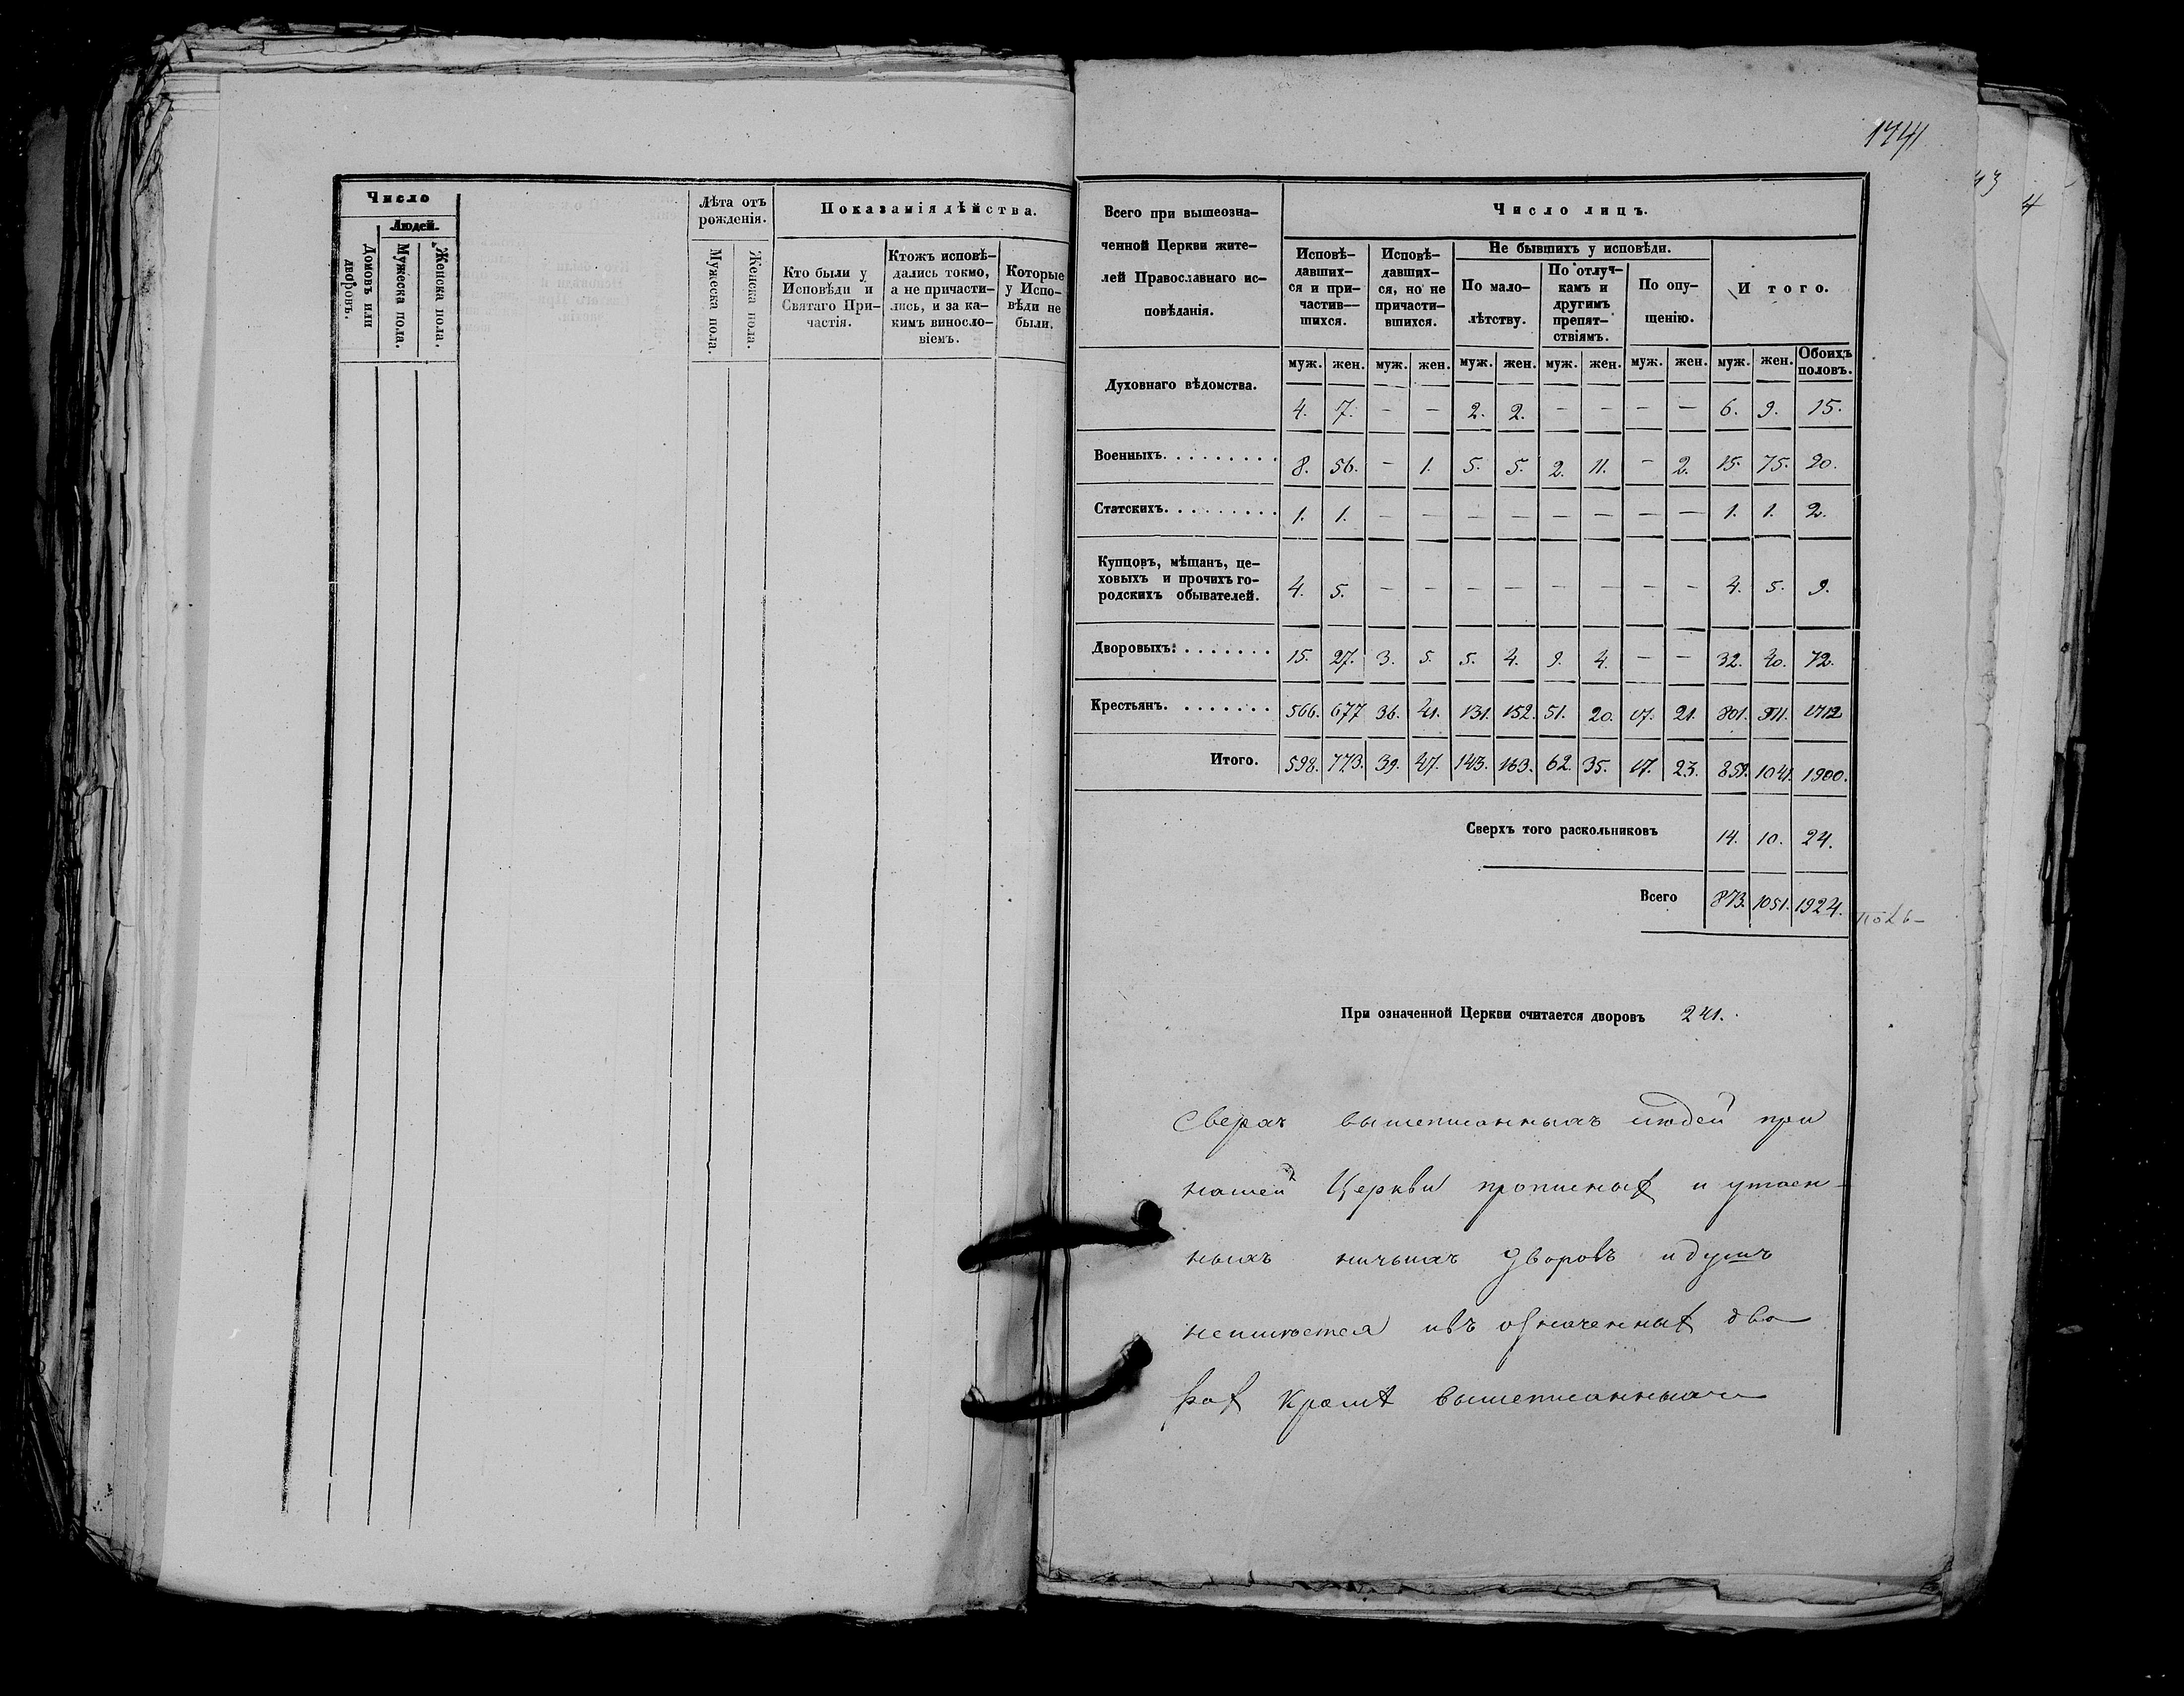 1741
Число
Людей.
Домовъ или дворовъ.
Мужеска пола.
Женска пола.
Лѣта отъ рожденія.
Мужеска пола.
Женска пола.
Показанія дѣйства.
Кто были у Исповѣди и Святаго Причастія.
Ктожъ исповѣ-
дались токмо,
а не причасти-
лись, и за ка-
кимъ винословіемъ.
Которые
у Испо-
вѣди не
были.
Всего при вышеозна-
ченной Церкви жите-
лей Православнаго ис-
повѣданія.
Число лицъ.
Исповѣ-
давших-
ся и при-
частив-
шихся.
Исповѣ-
давших-
ся, но не
причасти-
вшихся.
Не бывшихъ у исповѣди.
По мало-
лѣтству.
По отлуч-
камъ и
другимъ
препят-
ствіямъ.
По опу-
щенію.
И того.
муж. жен. муж. жен. муж. жен. муж. жен. муж. жен. муж. жен. Обоихъ половъ.
Духовнаго вѣдомства. 4. 7. — — 2. 2. — — — — 6. 9. 15.
Военныхъ. 8. 56. — 1. 5. 5. 2. 11. — 2. 15. 75. 90.
Статскихъ. 1. 1. — — — — — — — — 1. 1. 2.
Купцовъ, мѣщанъ, це-
ховыхъ и прочихъ го-
родскихъ обывателей. 4. 5. — — — — — — — — 4. 5. 9.
Дворовыхъ: 15. 27. 3. 5. 5. 4. 9. 4. — — 32. 40. 72.
Крестьянъ. 566. 677 36. 41. 131. 152. 51. 20. 17. 21. 801. 911. 1712
Итого. 598. 773. 39. 47. 143. 163. 62. 35. 17. 23. 859. 1041. 1900.
Сверхъ того раскольниковъ 14. 10. 24.
Всего 873. 1051. 1924.
При означенной Церкви считается дворовъ 241.
Сверхъ вышеписанныхъ людей при
нашей Церкви прописныхъ и утаен-
ныхъ ничьихъ дворовъ и душъ
неимѣется изъ означенныхъ дво
ровъ кромѣ вышеписанныхъ